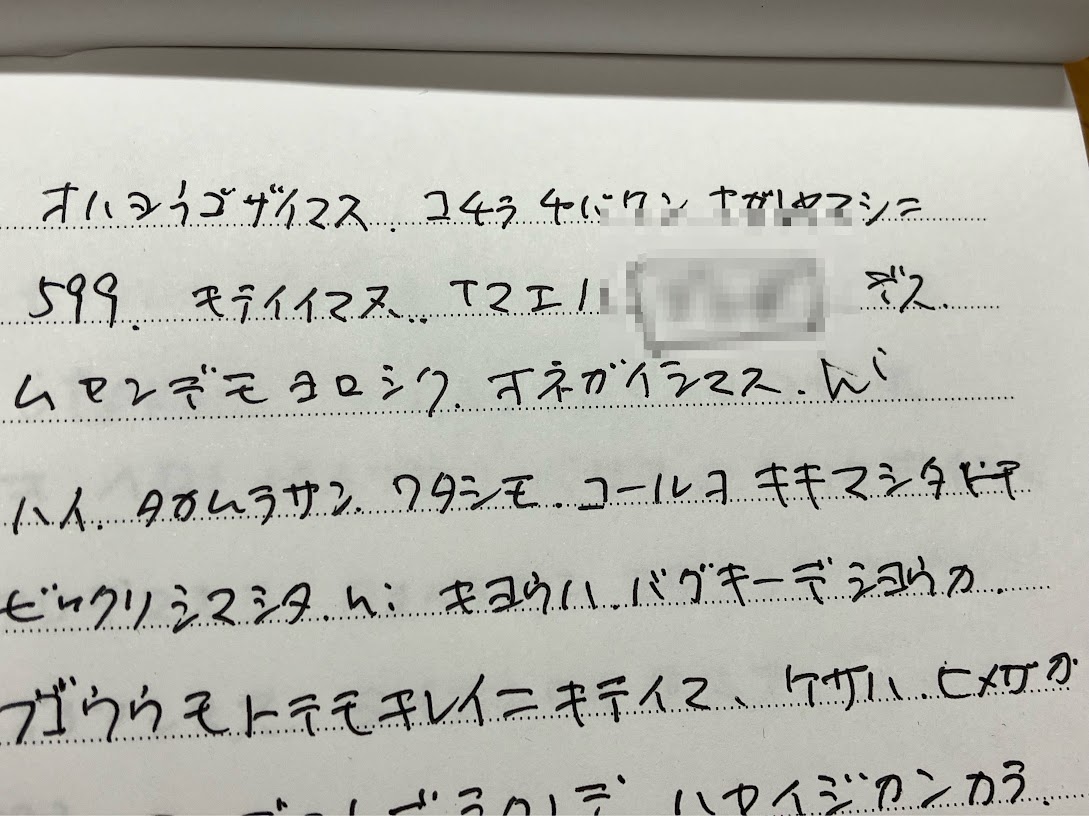 オハヨウゴザイマス. コチラ チバケン ナガレヤマシニ
599. キテイイマス.. Tマエハ デス.
ムセンデモヨロシク. オネガイシマス. hi
ハイ. タカムラサン. ワタシモ. コールヨ キキマシタトキ
ビックリシマシタ. hi キヨウハ. バグキーデショウカ.
フゴウウモトテモキレイニキテイマ、ケサハ. ヒメサカ
ハヤイジカンカラ.